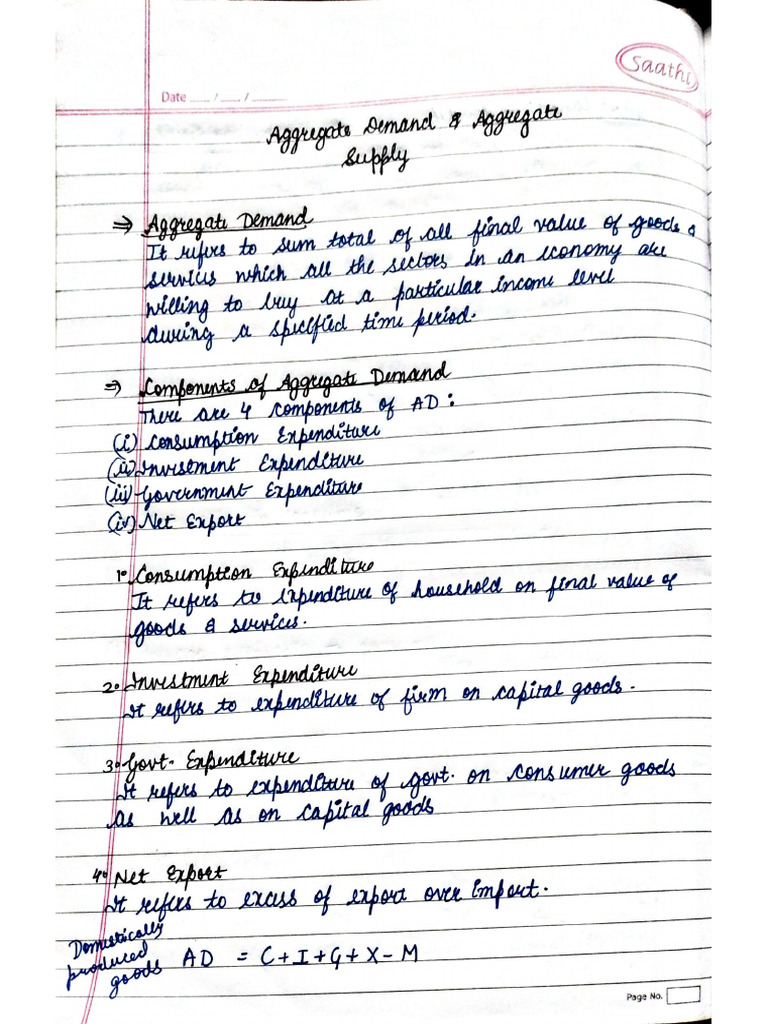 Saathi
Date ___ / ___ / _____
Aggregate Demand & Aggregate
Supply
⇒ Aggregate Demand
It refers to sum total of all final value of goods &
services which all the sectors in an economy are
willing to buy at a particular income level
during a specified time period.
⇒ Components of Aggregate Demand
There are 4 components of AD:
(i) Consumption Expenditure
(ii) Investment Expenditure
(iii) Government Expenditure
(iv) Net Export
1. Consumption Expenditure
It refers to expenditure of household on final value of
goods & services.
2. Investment Expenditure
It refers to expenditure of firm on capital goods.
3. Govt. Expenditure
It refers to expenditure of govt. on consumer goods
as well as on capital goods
4. Net Export
It refers to excess of export over import.
Domestically
produced
goods
AD = C+I+G+X-M
Page No.